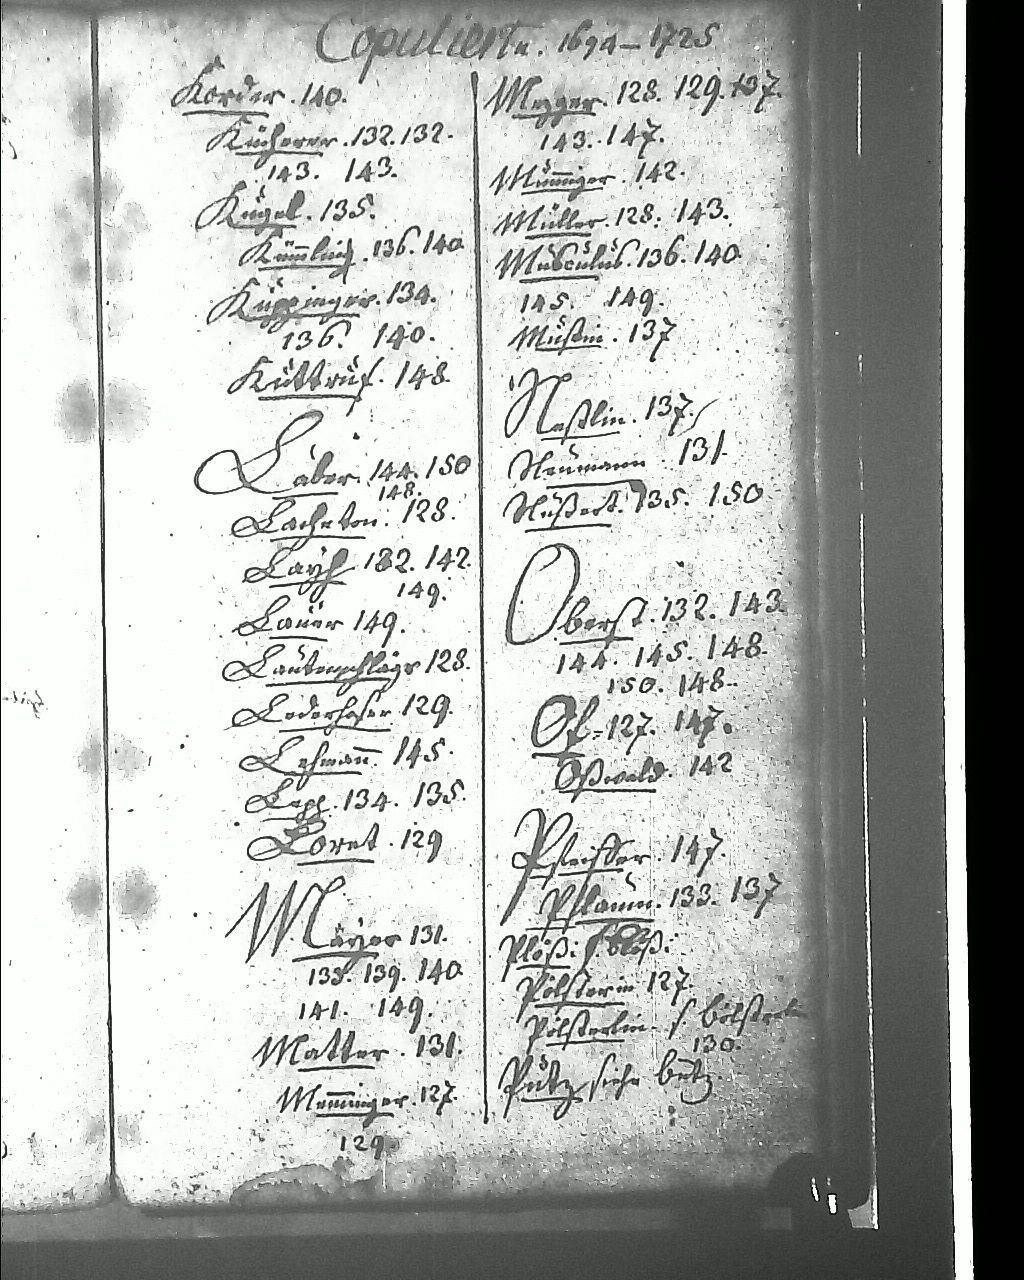 Copulierte. 1694 – 1725
Korder. 140.
Kücherer. 132. 132.
143. 143.
Kugel. 135.
Kümmling. 136. 140
Kuppinger. 134.
136. 140.
Kuttruf. 148.
Laber. 144. 150
148.
Lacheton. 128.
Layh 132. 142.
149.
Lauer 149.
Lautenschlager 128.
Lederhaser 129.
Lehmann. 145.
Lepp. 134. 135.
Loret. 129
Mayer 131.
133. 139. 140.
141. 149.
Matter. 131.
Memminger. 127.
129.
Mezger. 128. 129. 137.
143. 147.
Mummiger. 142.
Müller. 128. 143.
Musculus. 136. 140.
145. 149.
Mußin. 137
Neßlin. 137.
Neumann 131.
Nußert. 135. 150
Oberst. 132. 143.
144. 145. 148.
150. 148.
127. 147.
Oßwald. 142
147.
Pflaum. 133. 137
Plöß:
Pölsterin 127.
Pölsterlin. s. Bölsterlin
130.
Putz siehe Butz.